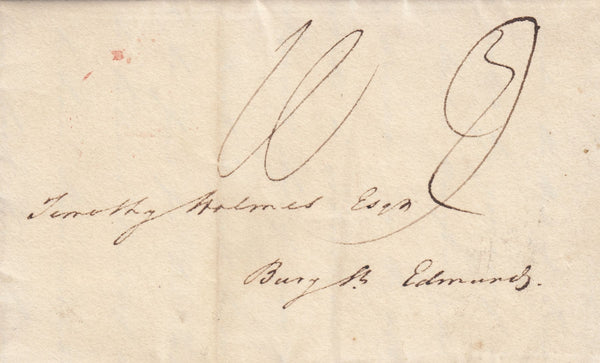 B
Timothy Holmes Esqr
Bury St. Edmunds.